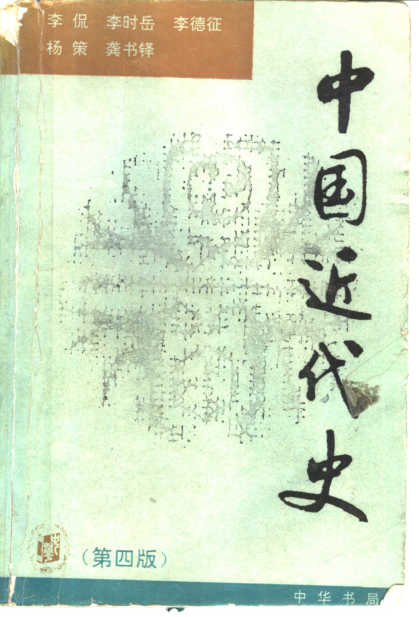 李侃 李时岳 李德征
杨策 龚书铎
中国近代史
（第四版）
中华书局